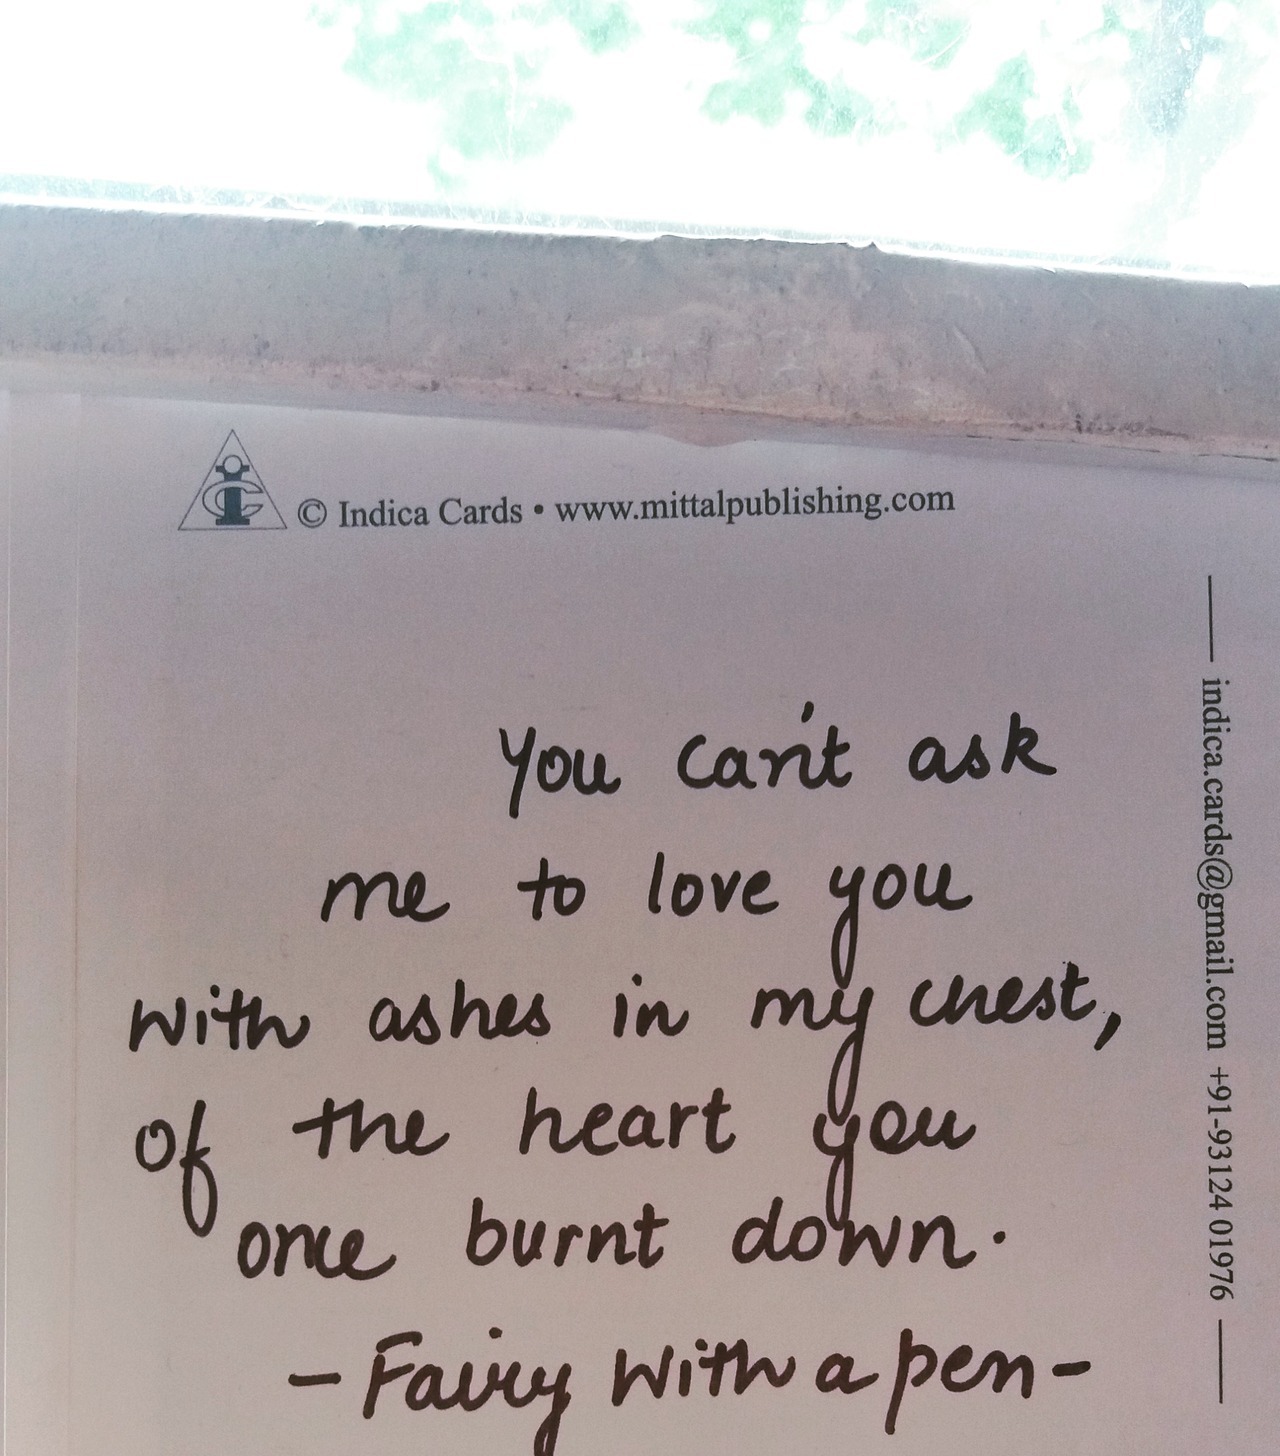 © Indica Cards • www.mittalpublishing.com
You can't ask
me to love you
with ashes in my chest,
of the heart you
once burnt down.
- Fairy with a pen -
indica.cards@gmail.com +91-93124 01976